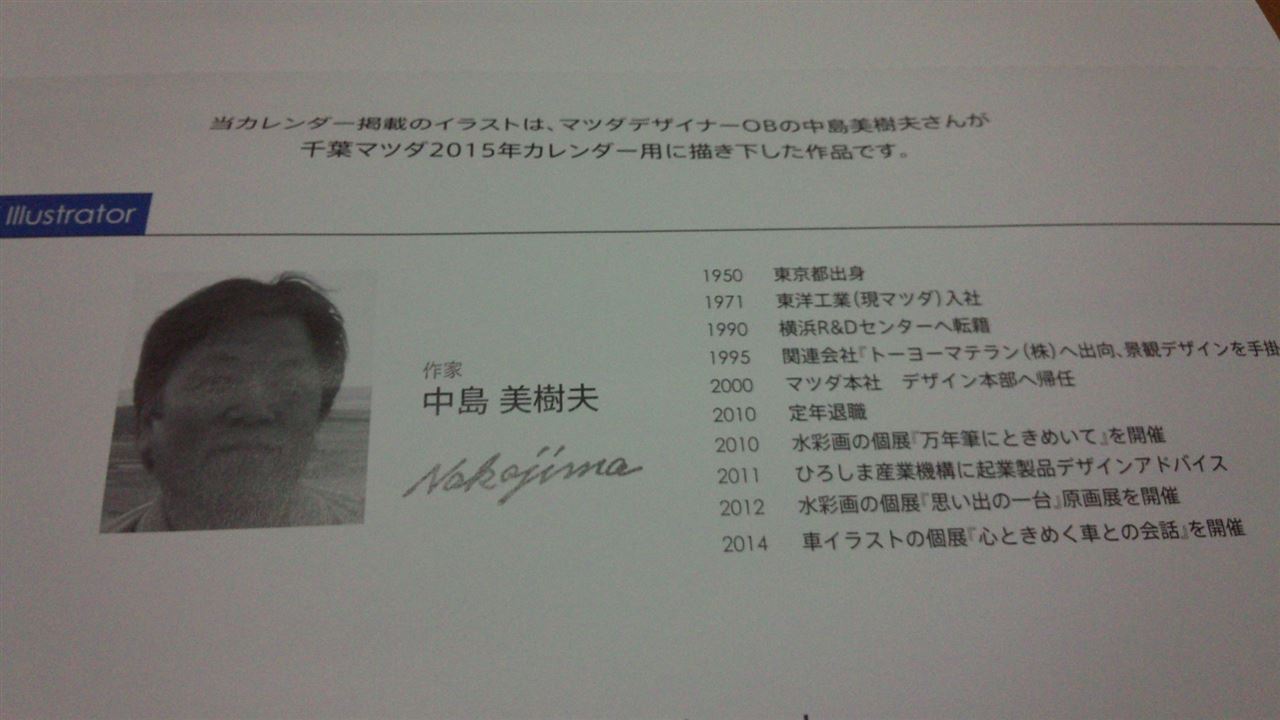 当カレンダー掲載のイラストは、マツダデザイナーOBの中島美樹夫さんが
千葉マツダ2015年カレンダー用に描き下した作品です。
Illustrator
作家
中島 美樹夫
Nakajima
1950 東京都出身
1971 東洋工業(現マツダ)入社
1990 横浜R&Dセンターへ転籍
1995 関連会社『トーヨーマテラン(株)へ出向、景観デザインを手掛
2000 マツダ本社 デザイン本部へ帰任
2010 定年退職
2010 水彩画の個展『万年筆にときめいて』を開催
2011 ひろしま産業機構に起業製品デザインアドバイス
2012 水彩画の個展『思い出の一台』原画展を開催
2014 車イラストの個展『心ときめく車との会話』を開催